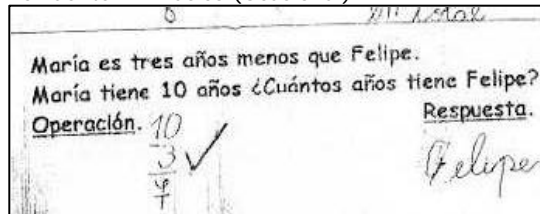 María es tres años menos que Felipe.
María tiene 10 años ¿Cuántos años tiene Felipe?
Operación.
Respuesta.
10
-3
7
Felipe